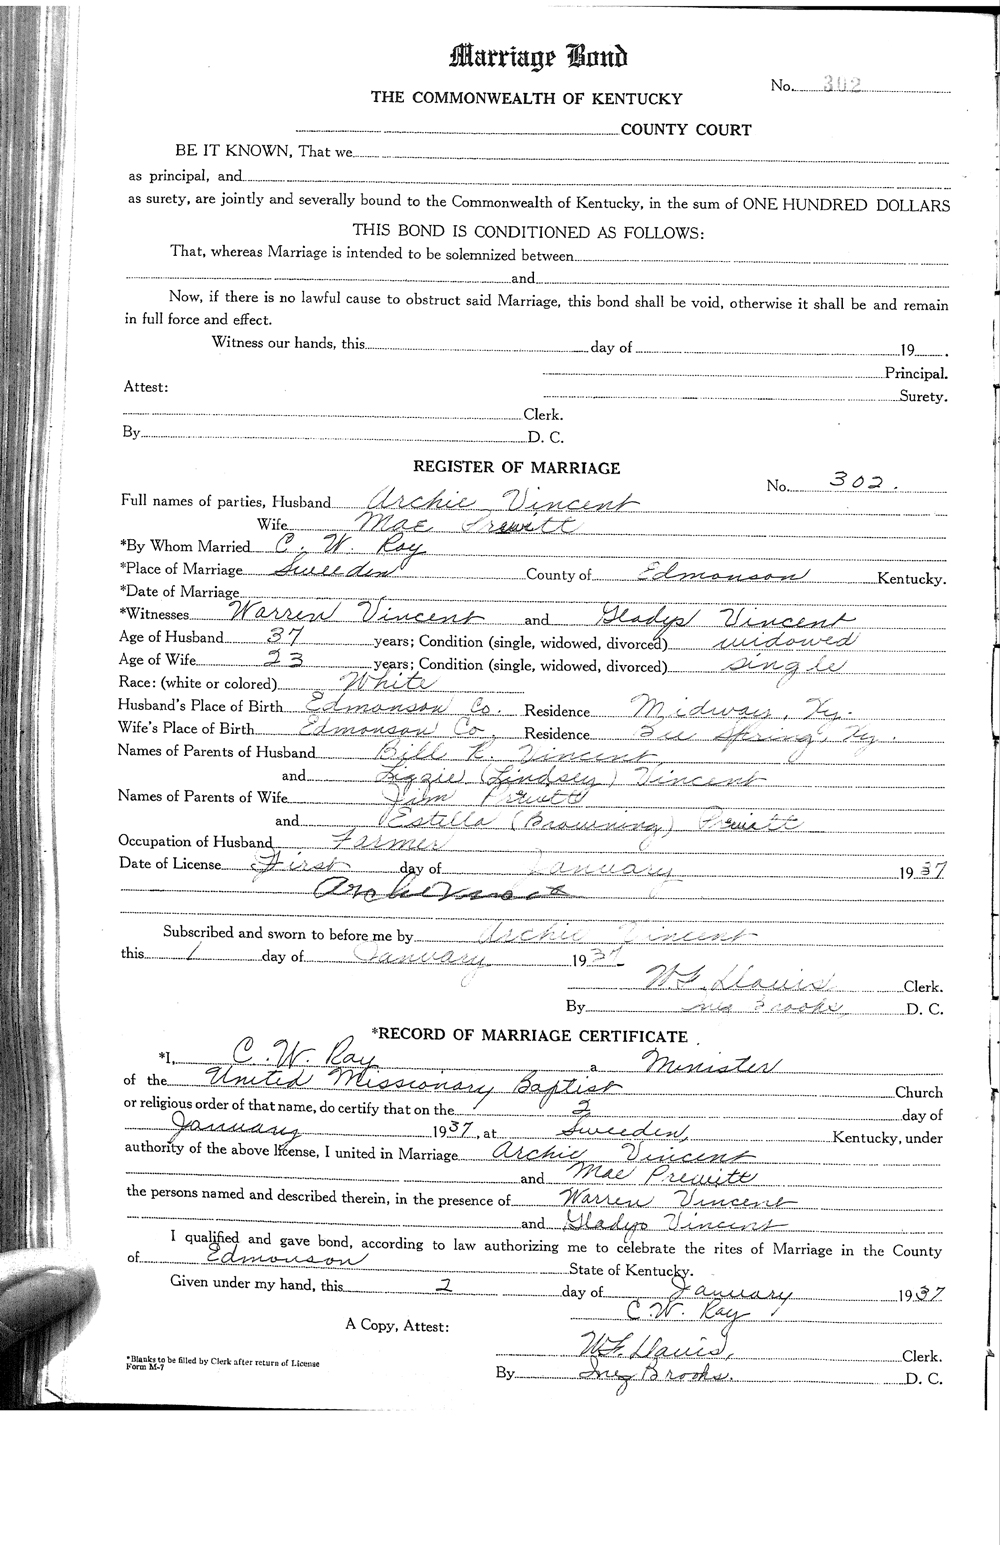 Marriage Bond
No. 302
THE COMMONWEALTH OF KENTUCKY
COUNTY COURT
BE IT KNOWN, That we
as principal, and
as surety, are jointly and severally bound to the Commonwealth of Kentucky, in the sum of ONE HUNDRED DOLLARS
THIS BOND IS CONDITIONED AS FOLLOWS:
That, whereas Marriage is intended to be solemnized between
and
Now, if there is no lawful cause to obstruct said Marriage, this bond shall be void, otherwise it shall be and remain
in full force and effect.
Witness our hands, this day of 19 .
Principal.
Attest:
Surety.
Clerk.
By D. C.
REGISTER OF MARRIAGE
No. 302.
Full names of parties, Husband Archie Vincent
Wife Mae Prewitt
*By Whom Married C. W. Ray
*Place of Marriage Sweeden County of Edmonson Kentucky.
*Date of Marriage
*Witnesses Warren Vincent and Gladys Vincent
Age of Husband 37 years; Condition (single, widowed, divorced) widowed
Age of Wife 23 years; Condition (single, widowed, divorced) single
Race: (white or colored) White
Husband's Place of Birth Edmonson Co. Residence Midway, Ky.
Wife's Place of Birth Edmonson Co. Residence Bee Spring, Ky.
Names of Parents of Husband Bill R. Vincent
and Lizzie (Lindsey) Vincent
Names of Parents of Wife Jim Prewitt
and Estella (Browning) Prewitt
Occupation of Husband Farmer
Date of License First day of January 1937
Archie Vincent
Subscribed and sworn to before me by Archie Vincent
this 1 day of January 1937
W.F. Davis Clerk.
By Inez Brooks, D. C.
*RECORD OF MARRIAGE CERTIFICATE
*I, C. W. Ray a Minister
of the United Missionary Baptist Church
or religious order of that name, do certify that on the 2 day of
January 1937, at Sweeden, Kentucky, under
authority of the above license, I united in Marriage Archie Vincent
and Mae Prewitt
the persons named and described therein, in the presence of Warren Vincent
and Gladys Vincent
I qualified and gave bond, according to law authorizing me to celebrate the rites of Marriage in the County
of Edmonson State of Kentucky.
Given under my hand, this 2 day of January 1937
C. W. Ray
A Copy, Attest:
W.F. Davis, Clerk.
*Blanks to be filled by Clerk after return of License
Form M-7
By Inez Brooks. D. C.